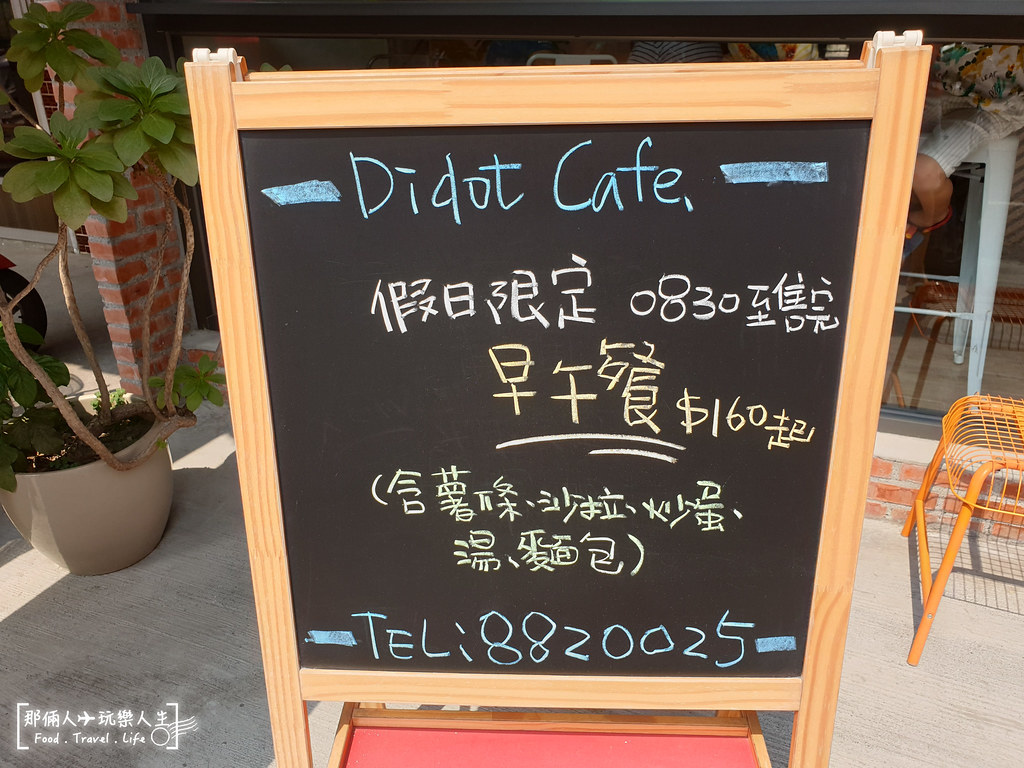 Didot Cafe、
假日限定 0830至售完
早午餐 $160起
(含薯條、沙拉、炒蛋、
湯、麵包)
TEL:8820025
那俩人✈玩樂人生
Food . Travel . Life